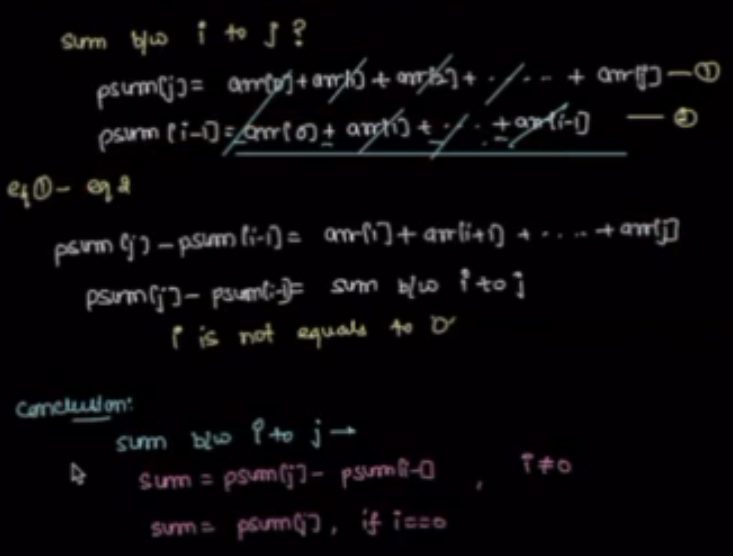 sum b/w i to j ?
psum[j] = arr[0] + arr[1] + arr[2] + . . . . . + arr[j] — ①
psum[i-1] = arr[0] + arr[1] + . . . + arr[i-1] — ②
eq ① - eq 2
psum[j] - psum[i-1] = arr[i] + arr[i+1] + . . . . + arr[j]
psum[j] - psum[i-1] = sum b/w i to j
i is not equals to 0
Conclusion:
sum b/w i to j →
sum = psum[j] - psum[i-1] , i ≠ 0
sum = psum[j], if i==0